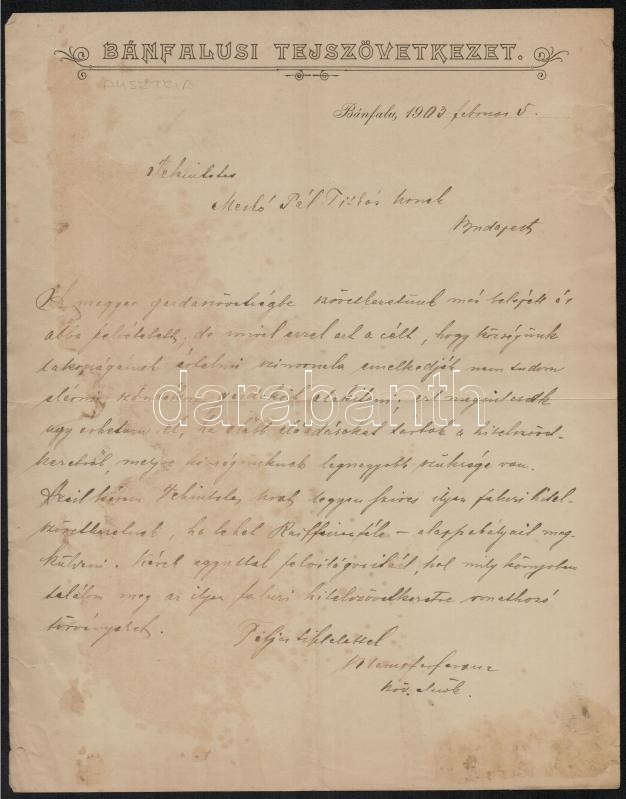 BÁNFALUSI TEJSZÖVETKEZET.
AUSZTRIA
Bánfalu, 1903 február 5.
Tekintetes
Meskó Pál Titkár Urnak
Budapest
A magyar gazdaszövetségbe szövetkezetünk már belépett és
abba felvétetett, de mivel ezzel azt a célt, hogy községünk
lakosságának értelmi szinvonala emelkedjék nem tudom
elérni, ezt megint csak
ugy érhetem el, ha előadásokat tartok a hitelszövet-
kezetről, melyre községünknek legnagyobb szüksége van.
Azért kérem Tekintetes Urat legyen szives ilyen falusi hitel-
szövetkezetnek, ha lehet Raiffeisenféle – alapszabályait meg-
küldeni. Kérek egyuttal felvilágositást, hol mily könyvben
találom meg az ilyen falusi hitelszövetkezetre vonatkozó
törvényeket.
Teljes tisztelettel
ferenc
szöv. elnök.
darabanth